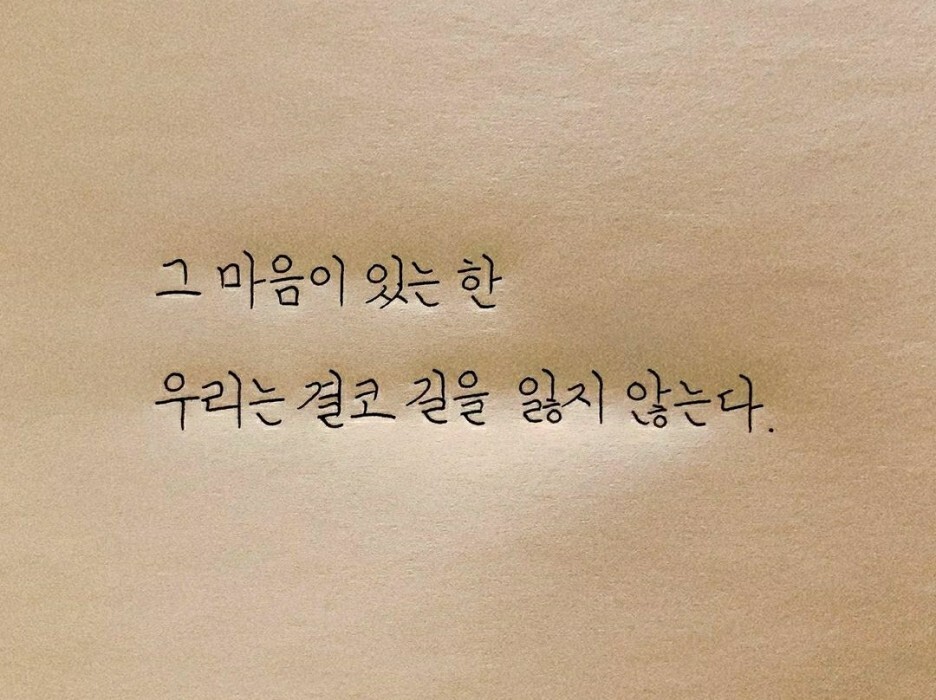 그 마음이 있는 한
우리는 결코 길을 잃지 않는다.